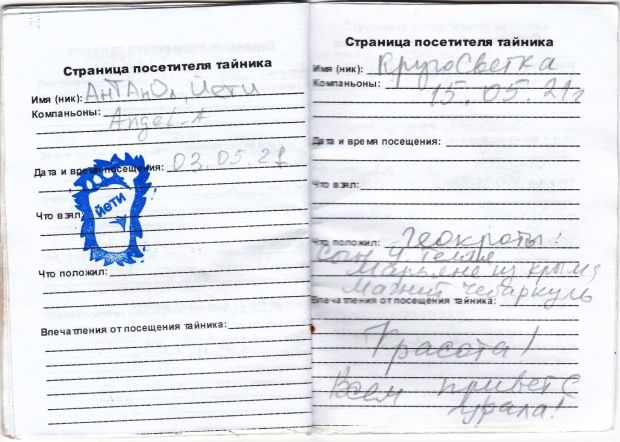 Страница посетителя тайника
Имя (ник): АнТАнОл, Йети
Компаньоны: Angel-A
Дата и время посещения: 03.05.21
йети
Что взял:
Что положил:
Впечатления от посещения тайника:
Страница посетителя тайника
Имя (ник): КругоСветка
Компаньоны: 15.05.21г
Дата и время посещения:
Что взял:
Что положил: геокроты:
Марьяне из Крыма
Магнит Чебаркуль
Впечатления от посещения тайника:
Красота!
Всем привет с
Урала!